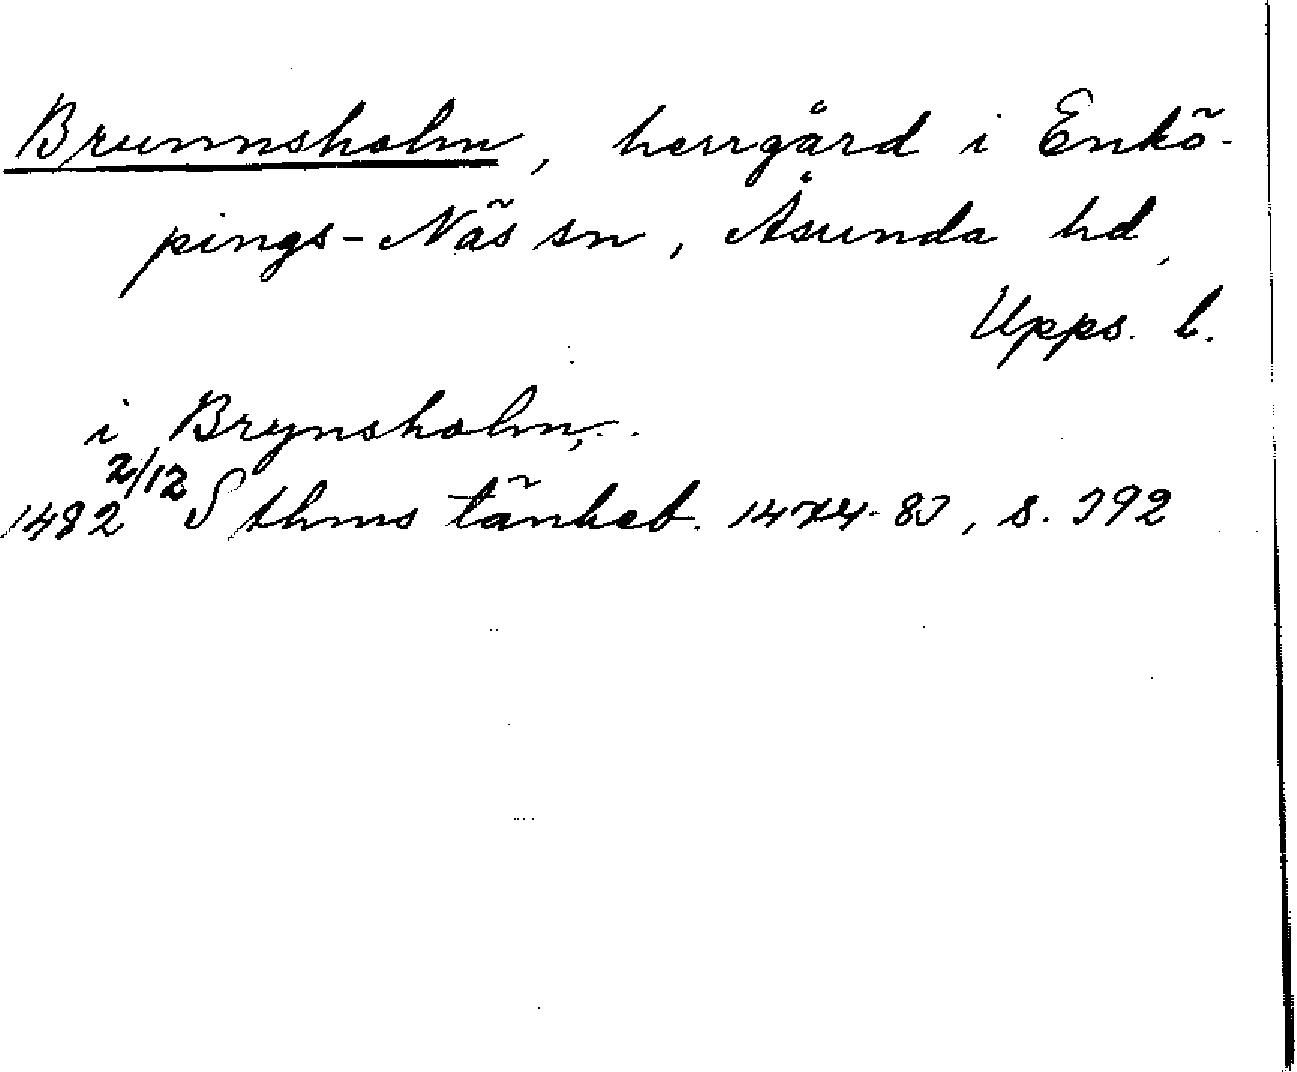 Brunnsholm, herrgård i Enkö-
pings-Näs sn, Åsunda hd,
Upps. l.
i Brynsholm,
1482 2/12 Sthms tänkeb. 1474-83, s. 392